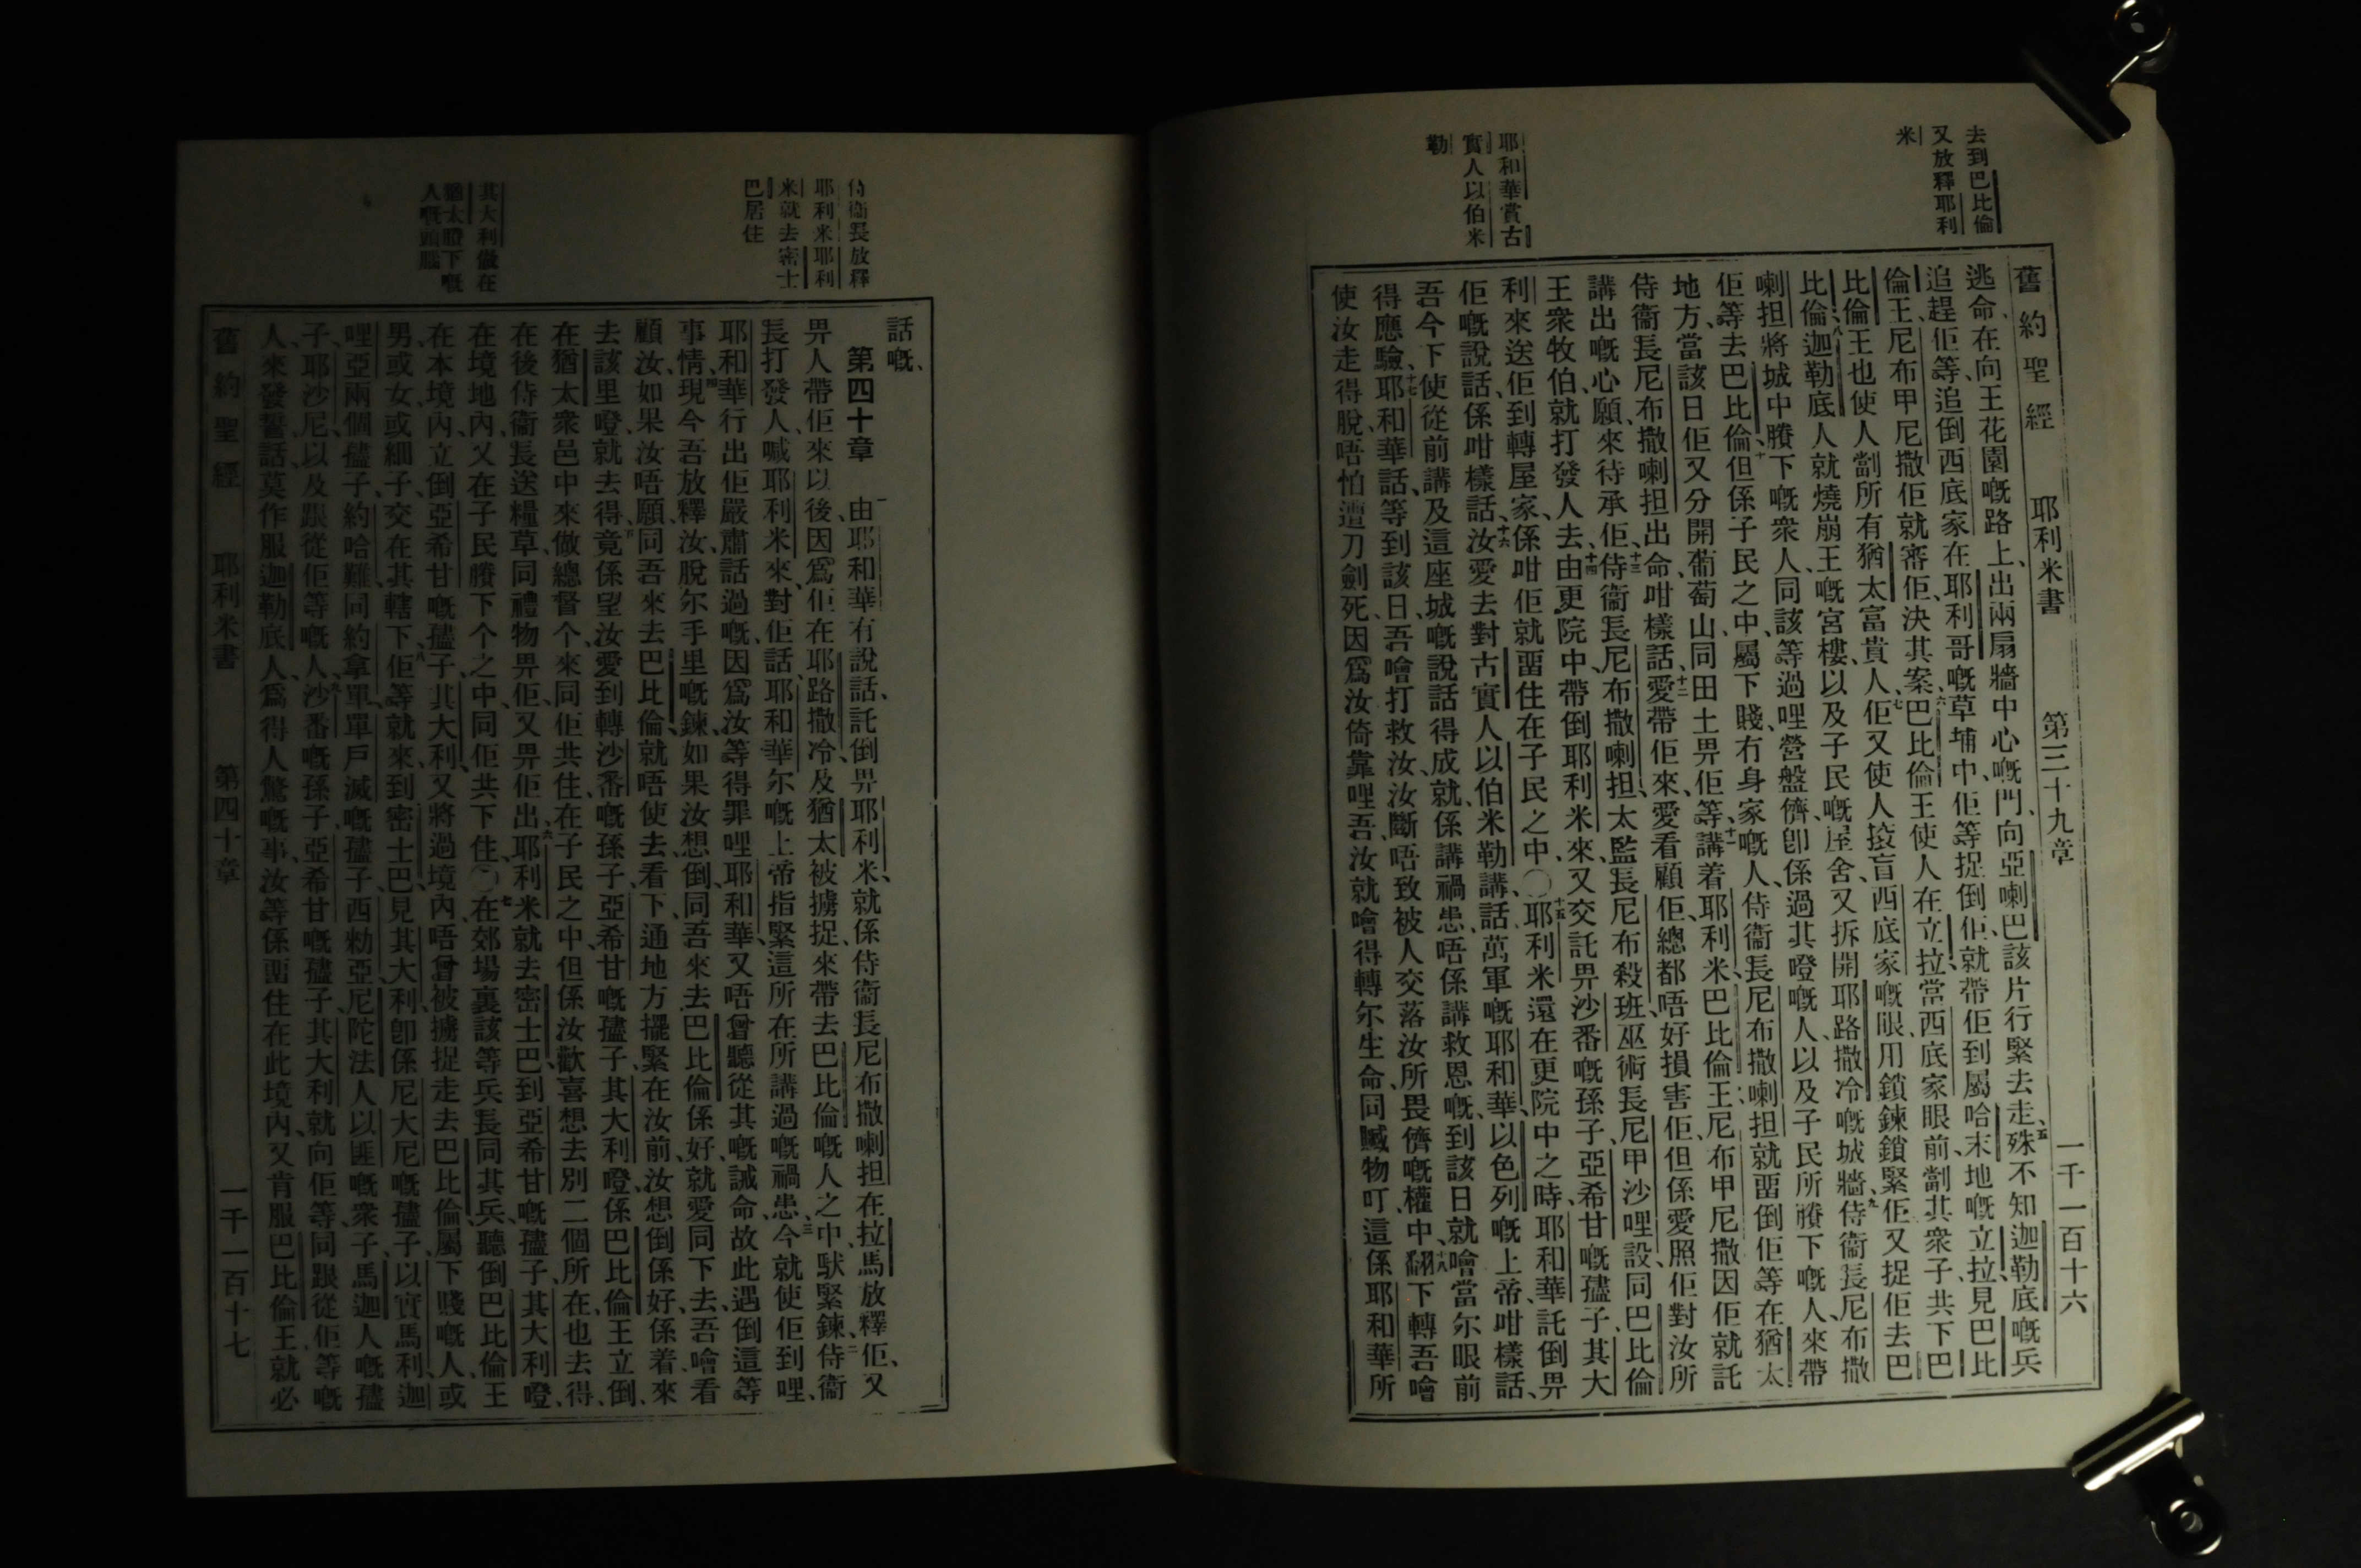 去到巴比倫
又放釋耶利
米
耶和華賞古
實人以伯米
勒
舊約聖經 耶利米書 第三十九章 一千一百十六
逃命、在向王花園嘅路上、出兩扇牆中心嘅門、向亞喇巴該片行緊去走、五殊不知迦勒底嘅兵
追趕佢等、追倒西底家在耶利哥嘅草埔中、佢等捉倒佢、就帶佢到屬哈末地嘅立拉、見巴比
倫王尼布甲尼撒、佢就審佢、決其案、六巴比倫王使人在立拉、當西底家眼前劏其衆子、共下巴
比倫王也使人劏所有猶太富貴人、七佢又使人揬盲西底家嘅眼、用鎖鍊鎖緊佢、又捉佢去巴
比倫、八迦勒底人就燒崩王嘅宮樓、以及子民嘅屋舍、又拆開耶路撒冷嘅城牆、九侍衞長尼布撒
喇担將城中賸下嘅衆人、同該等過哩營盤儕、卽係過其嶝嘅人、以及子民所賸下嘅人、來帶
佢等去巴比倫、十但係子民之中、屬下賤冇身家嘅人、侍衞長尼布撒喇担就畱倒佢等在猶太
地方、當該日佢又分開葡萄山同田土畀佢等、十一講着耶利米、巴比倫王尼布甲尼撒因佢就託
侍衞長尼布撒喇担出命、咁樣話、十二愛帶佢來、愛看顧佢、總都唔好損害佢、但係愛照佢對汝所
講出嘅心願來待承佢、十三侍衞長尼布撒喇担、太監長尼布殺班、巫術長尼甲沙哩設、同巴比倫
王衆牧伯、就打發人去、十四由更院中帶倒耶利米來、又交託畀沙番嘅孫子、亞希甘嘅孻子、其大
利來送佢到轉屋家、係咁佢就畱住在子民之中、〇十五耶利米還在更院中之時、耶和華託倒畀
佢嘅說話、係咁樣話、十六汝愛去對古實人以伯米勒講、話萬軍嘅耶和華、以色列嘅上帝咁樣話、
吾今下使從前講及這座城嘅說話得成就、係講禍患、唔係講救恩嘅、到該日就噲當尔眼前
得應驗、十七耶和華話、等到該日吾噲打救汝、汝斷唔致被人交落汝所畏儕嘅權中、十八翻下轉吾噲
使汝走得脫、唔怕遭刀劍死、因爲汝倚靠哩吾、汝就噲得轉尔生命、同贓物叮、這係耶和華所
侍衞長放釋
耶利米耶利
米就去密士
巴居住
其大利做在
猶太賸下嘅
人嘅頭腦
話嘅、
第四十章 一由耶和華有說話、託倒畀耶利米、就係侍衞長尼布撒喇担在拉馬放釋佢、又
畀人帶佢來以後、因爲佢在耶路撒冷及猶太被擄捉、來帶去巴比倫嘅人之中、馱緊鍊、二侍衞
長打發人、喊耶利米來、對佢話、耶和華尔嘅上帝、指緊這所在所講過嘅禍患、三今就使佢到哩、
耶和華行出佢嚴肅話過嘅、因爲汝等得罪哩耶和華、又唔曾聽從其嘅誡命、故此遇倒這等
事情、四現今吾放釋汝、脫尔手里嘅鍊、如果汝想倒、同吾來去巴比倫係好、就愛同下去、吾噲看
顧汝、如果汝唔願同吾來去巴比倫、就唔使去、看下、通地方擺緊在汝前、汝想倒係好、係着來
去該里嶝、就去得、五竟係望汝愛到轉沙番嘅孫子、亞希甘嘅孻子、其大利嶝、係巴比倫王立倒、
在猶太衆邑中來做總督个、來同佢共住在子民之中、但係汝歡喜想去別二個所在、也去得、
在後侍衞長送糧草、同禮物畀佢、又畀佢出、六耶利米就去密士巴、到亞希甘嘅孻子其大利嶝、
在境地內、又在子民賸下个之中、同佢共下住、〇七在郊場裏該等兵長、同其兵、聽倒巴比倫王
在本境內、立倒亞希甘嘅孻子、其大利、又將過境內、唔曾被擄捉走去巴比倫、屬下賤嘅人、或
男或女、或細子、交在其轄下、八佢等就來到密士巴、見其大利、卽係尼大尼嘅孻子、以實馬利、迦
哩亞兩個孻子、約哈難、同約拿單、單戶滅嘅孻子、西勑亞、尼陀法人以匪嘅衆子、馬迦人嘅孻
子、耶沙尼、以及跟從佢等嘅人、九沙番嘅孫子、亞希甘嘅孻子、其大利、就向佢等、同跟從佢等嘅
人、來發誓話、莫作服迦勒底人、爲得人驚嘅事、汝等係畱住在此境內、又肯服巴比倫王、就必
舊約聖經 耶利米書 第四十章 一千一百十七